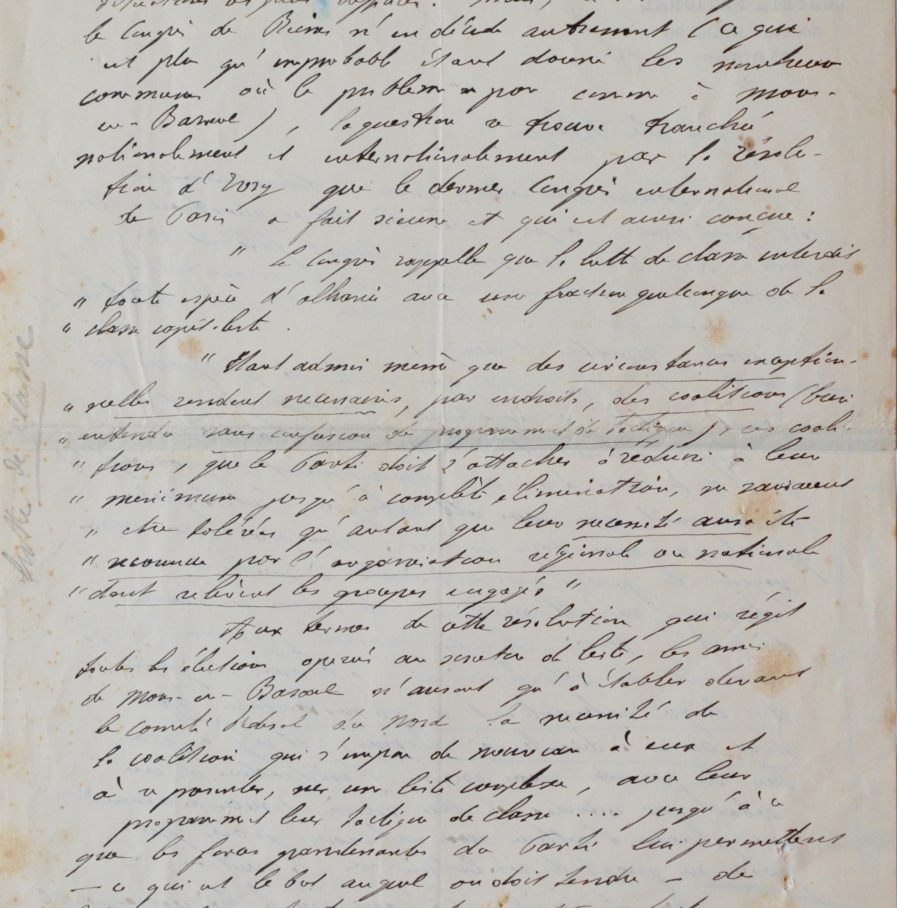 le Congrès de Reims n'en décide autrement (ce qui
est plus qu'improbable étant donné les nombreuses
communes où le problème se pose comme à Mons-
en-Baroeul), la question se trouve tranchée
nationalement et internationalement par la résolu-
tion d'Ivry que le dernier Congrès international
de Paris a fait sienne et qui est ainsi conçue :
" Le Congrès rappelle que la lutte de classe interdit
" toute espèce d'alliance avec une fraction quelconque de la
" classe capitaliste.
" Etant admis même que des circonstances exception-
" nelles rendent nécessaires, par endroits, des coalitions (bien
" entendu sans confusion de programme et de tactique) ces coali-
" tions, que le Parti doit s'attacher à réduire à leur
" minimum jusqu'à complète élimination, ne sauraient
" être tolérées qu'autant que leur nécessité aura été
" reconnue par l'organisation régionale ou nationale
" dont relèvent les groupes engagés "
Aux termes de cette résolution qui régit
toutes les élections opérées au scrutin de liste, les amis
de Mons-en-Baroeul n'auront qu'à établir devant
le comité fédéral du Nord la nécessité de
la coalition qui s'impose de nouveau à eux et
à se présenter, sur une liste complexe, avec leur
programme et leur tactique de classe .... jusqu'à ce
que les forces grandissantes du Parti leur permettent
— ce qui est le but auquel on doit tendre — de
lutte de classe